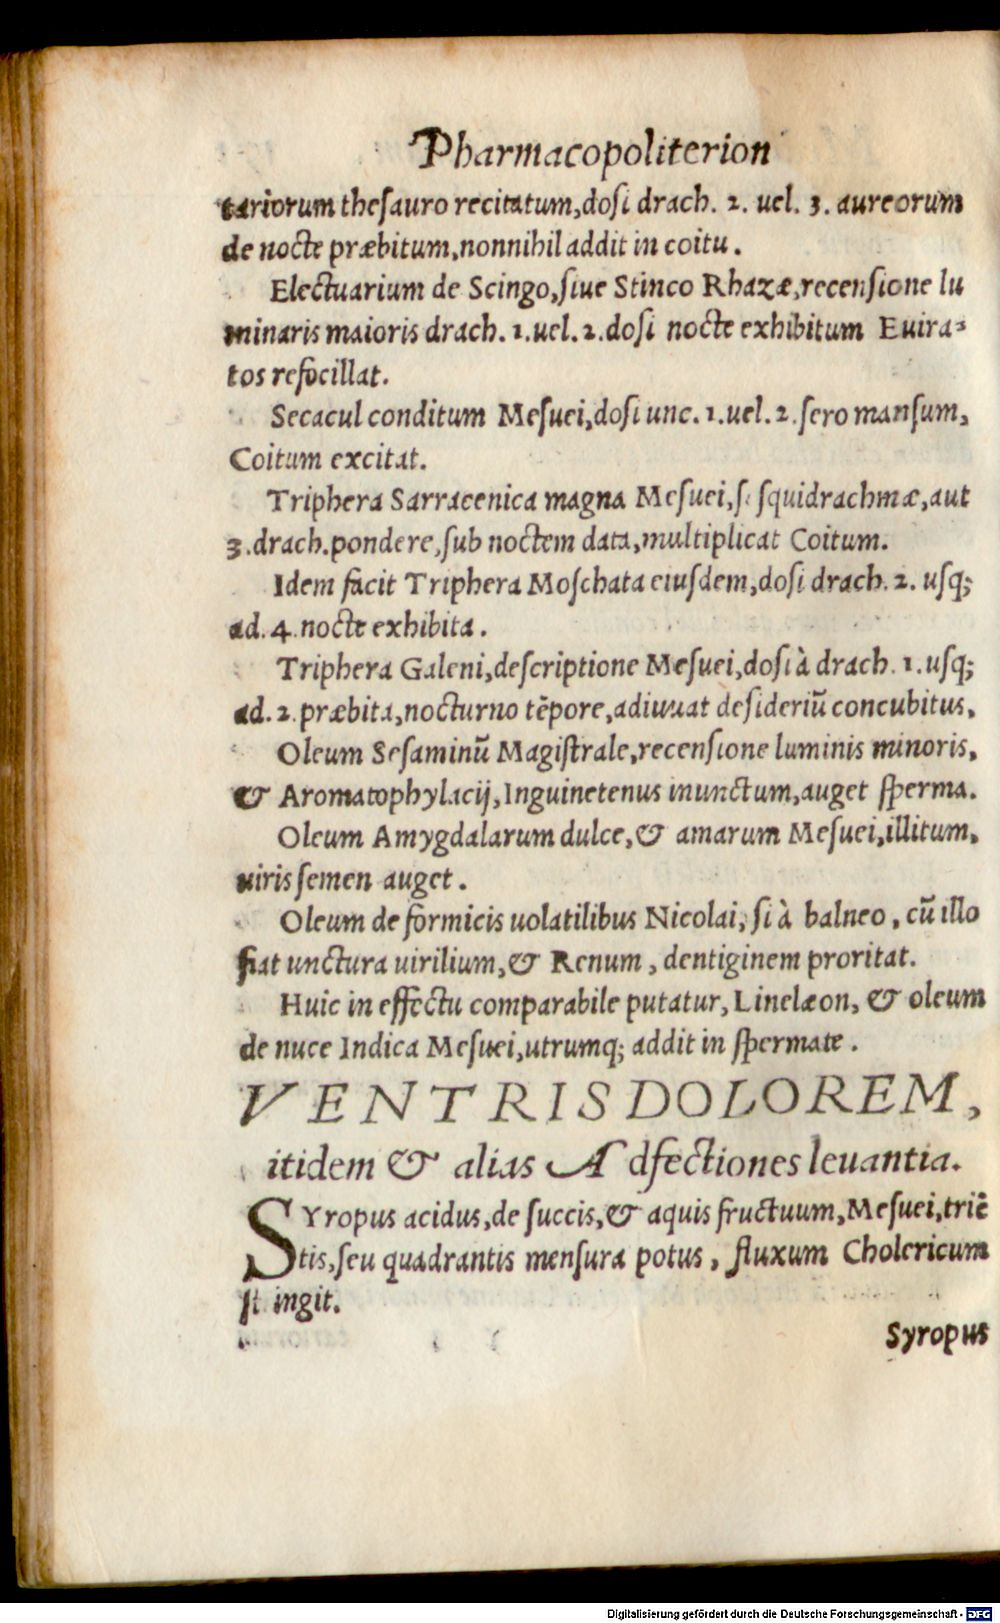 Pharmacopoliterion
tariorum thesauro recitatum, dosi drach. 2. uel. 3. aureorum
de nocte præbitum, nonnihil addit in coitu.
Electuarium de Scingo, siue Stinco Rhazæ, recensione lu
minaris maioris drach. 1. uel. 2. dosi nocte exhibitum Euira-
tos refocillat.
Secacul conditum Mesuei, dosi unc. 1. uel. 2. sero mansum,
Coitum excitat.
Triphera Sarracenica magna Mesuei, s squidrachmæ, aut
3. drach. pondere, sub noctem data, multiplicat Coitum.
Idem facit Triphera Moschata eiusdem, dosi drach. 2. usq;
ad. 4. nocte exhibita.
Triphera Galeni, descriptione Mesuei, dosi à drach. 1. usq;
ad. 2. præbita, nocturno tēpore, adiuuat desideriū concubitus.
Oleum Sesaminū Magistrale, recensione luminis minoris,
& Aromatophylacij, Inguinetenus inunctum, auget sperma.
Oleum Amygdalarum dulce, & amarum Mesuei, illitum,
uiris semen auget.
Oleum de formicis uolatilibus Nicolai, si à balneo, cū illo
fiat unctura uirilium, & Renum, dentiginem proritat.
Huic in effectu comparabile putatur, Linelæon, & oleum
de nuce Indica Mesuei, utrumq; addit in spermate.
VENTRIS DOLOREM,
itidem & alias Adfectiones leuantia.
SYropus acidus, de succis, & aquis fructuum, Mesuei, triē
tis, seu quadrantis mensura potus, fluxum Cholericum
st ingit.
Syropus
Digitalisierung gefördert durch die Deutsche Forschungsgemeinschaft - DFG